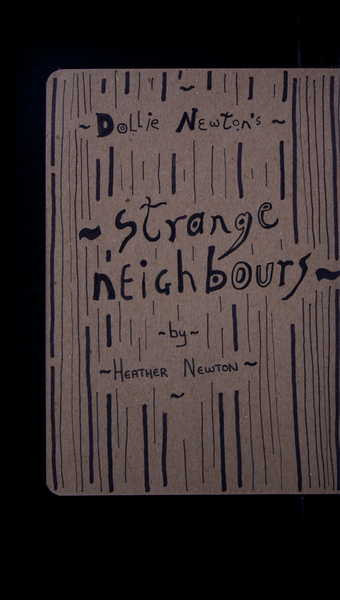 ~ Dollie Newton's ~
~ strange
neighbours ~
~by~
~HEATHER NEWTON~